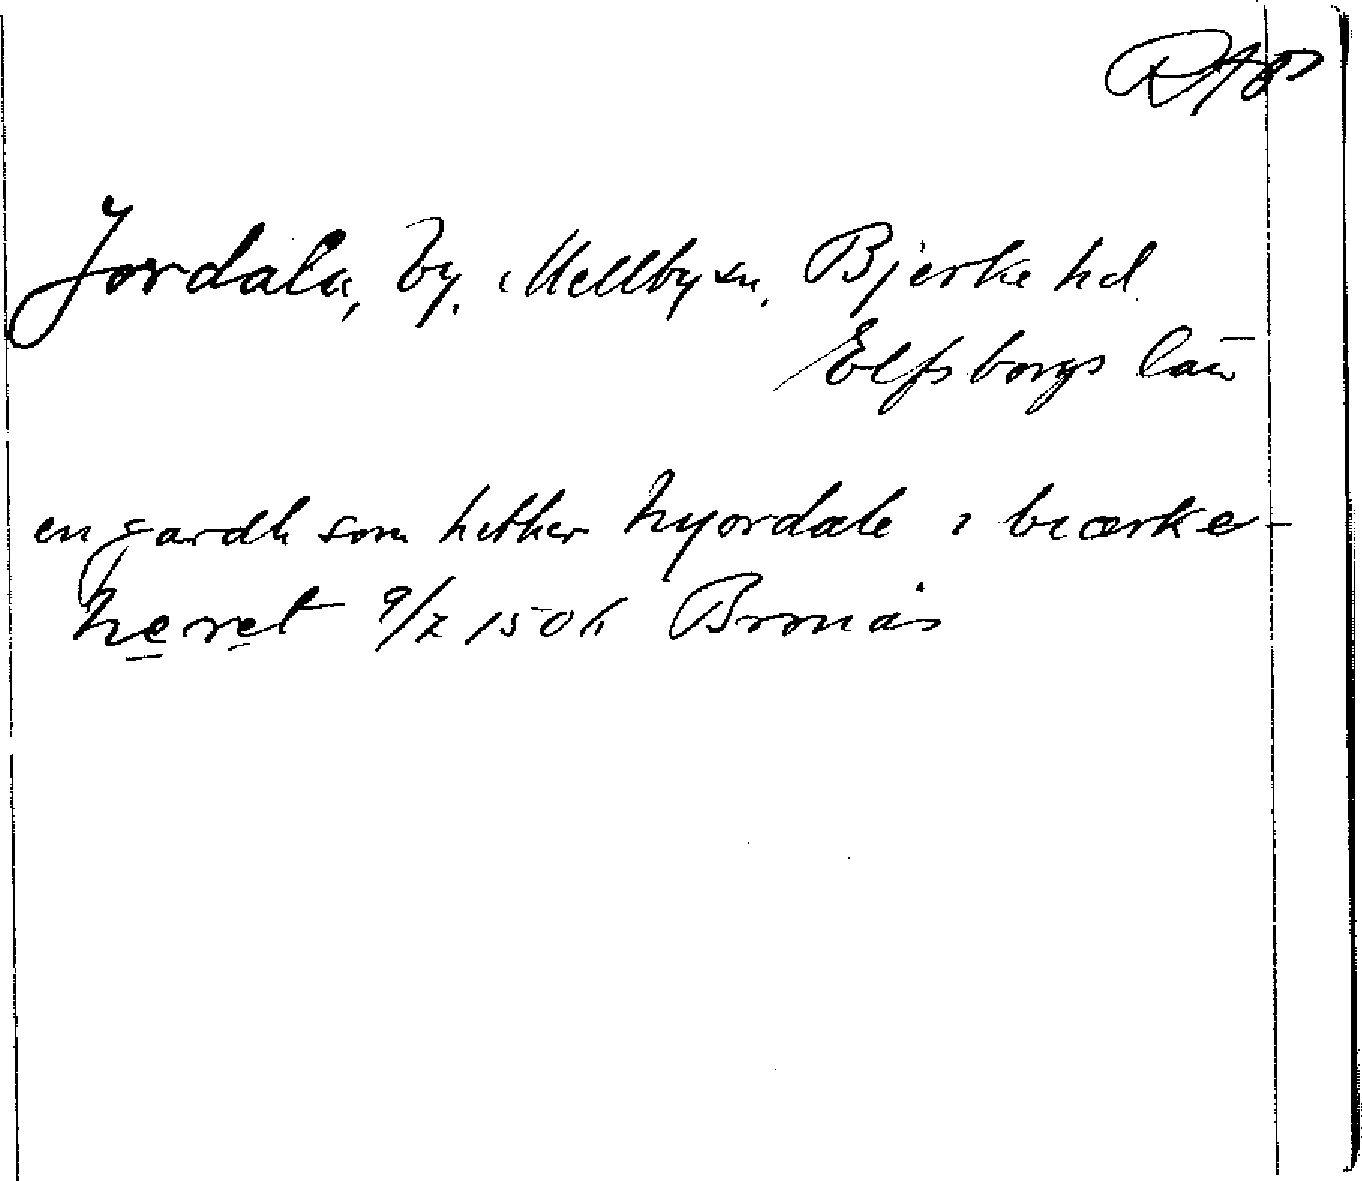 RAP
Jordala, by, i Mellby sn, Bjerke hd.
Elfsborgs län
en gardh som hether hyordale i biærke-
heret 9/7 1506